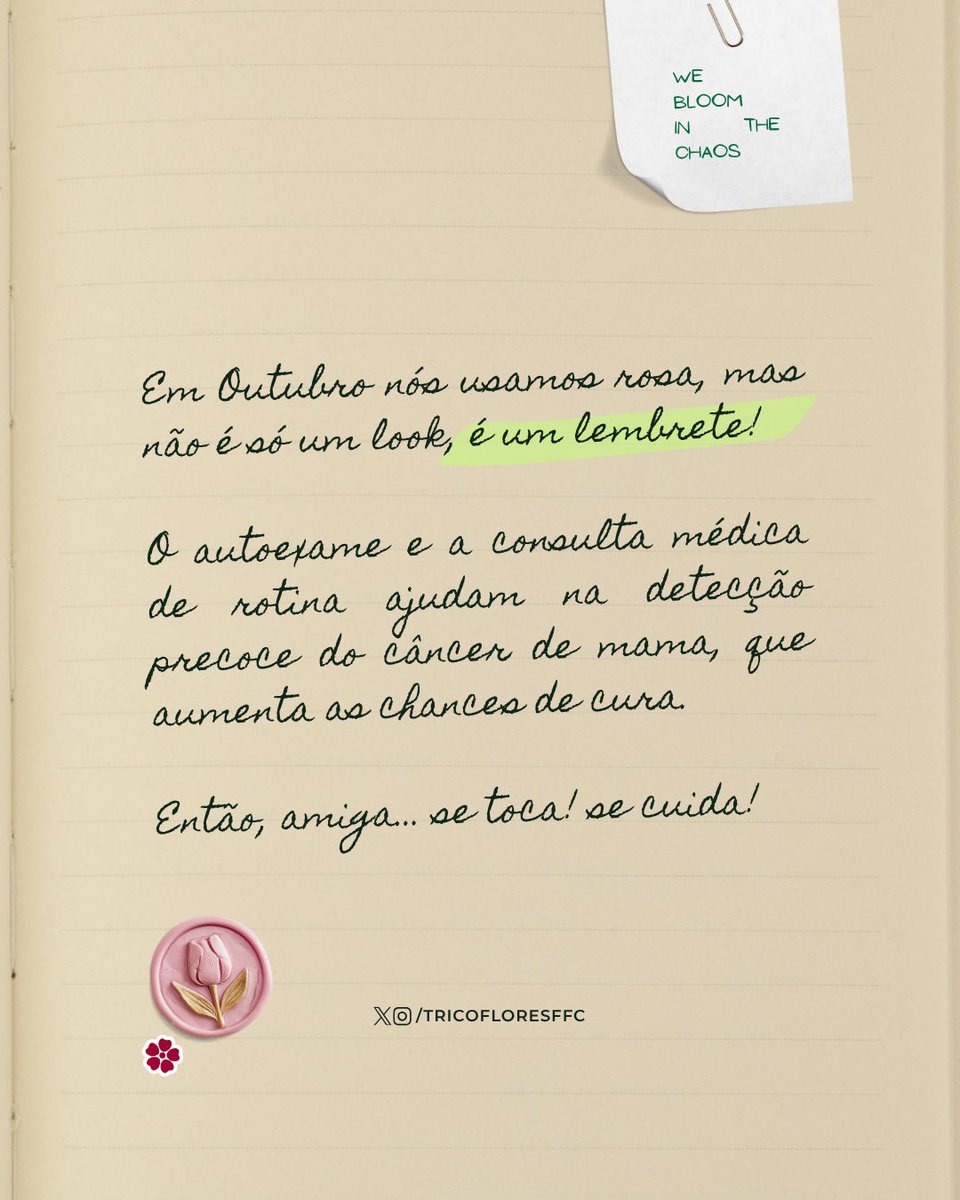 WE
BLOOM
IN THE
CHAOS
Em Outubro nós usamos rosa, mas
não é só um look, é um lembrete!
O autoexame e a consulta médica
de rotina ajudam na detecção
precoce do câncer de mama, que
aumenta as chances de cura.
Então, amiga... se toca! se cuida!
/TRICOFLORESFFC